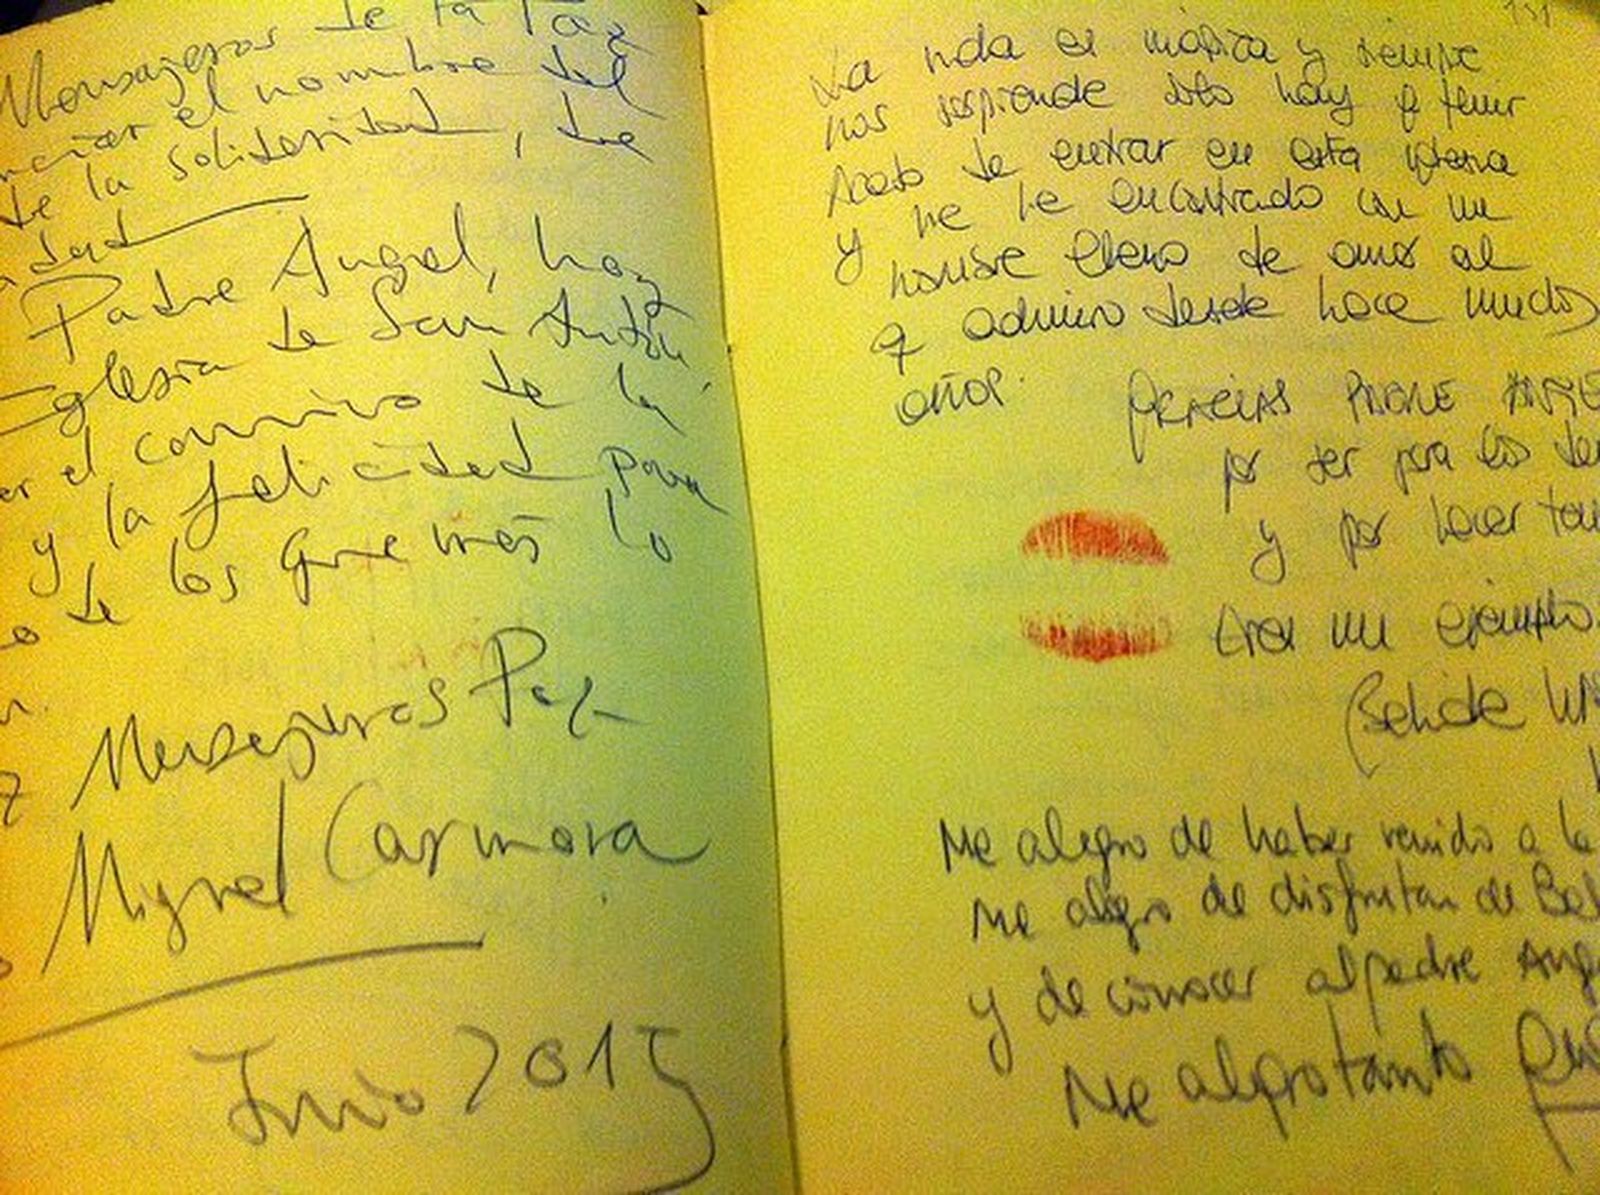 Mensajeros de la Paz
el nombre del
de la solidaridad, de
Padre Angel, hoy
Iglesia de San Antón,
el camino de la
y la felicidad para
de los que más lo
Mensajeros Paz
Miguel Carmona
Junio 2015
151
La vida es mágica y siempre
nos sorprende solo hay q
Acabo de entrar en esta iglesia
y me he encontrado con un
hombre lleno de amor al
q admiro desde hace muchos
años.
GRACIAS PADRE
por ser para los
y por hacer
Eres un ejemplo.
Me alegro de haber venido a la
Me alegro de disfrutar de
y de conocer al padre
Me alegro tanto